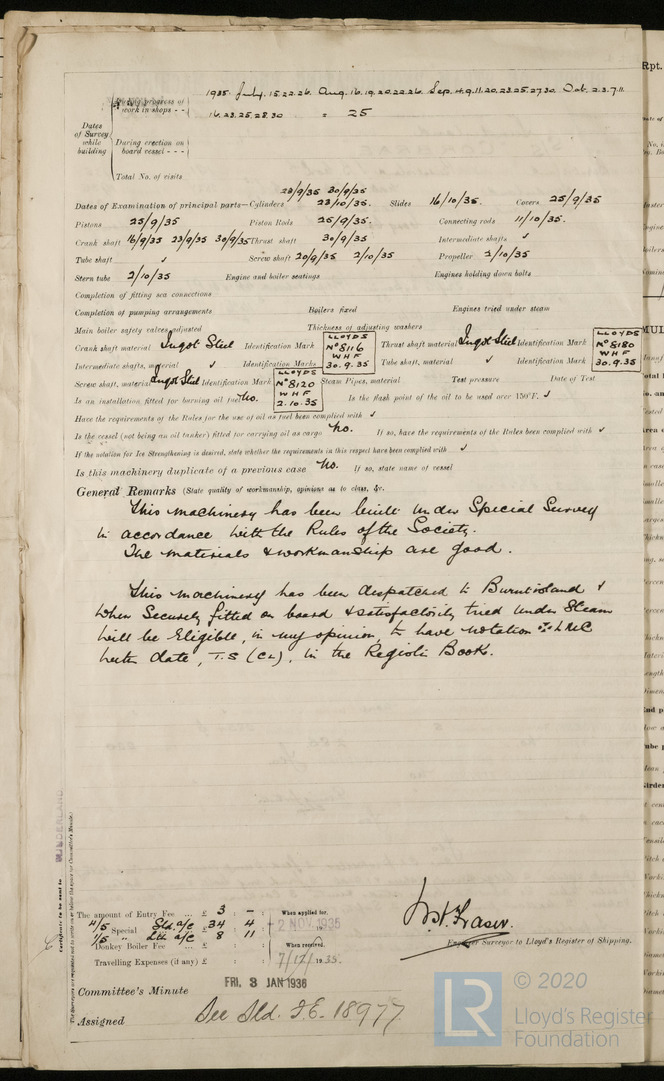 1935. July. 15.22.26. Aug. 16.19.20.22.26. Sep. 4.9.11.20.23.25.27.30. Oct. 2.3.7.11.
During progress of work in shops - -
16.23.25.28.30 = 25
Dates of Survey while building
During erection on board vessel - - -
Total No. of visits
23/9/35 30/9/35
Dates of Examination of principal parts—Cylinders 23/10/35. Slides 16/10/35. Covers 25/9/35
Pistons 25/9/35 Piston Rods 25/9/35. Connecting rods 11/10/35.
Crank shaft 16/9/35 23/9/35 30/9/35 Thrust shaft 30/9/35 Intermediate shafts ✓
Tube shaft ✓ Screw shaft 20/9/35 2/10/35 Propeller 2/10/35
Stern tube 2/10/35 Engine and boiler seatings Engines holding down bolts
Completion of fitting sea connections
Completion of pumping arrangements Boilers fixed Engines tried under steam
Main boiler safety valves adjusted Thickness of adjusting washers
Crank shaft material Ingot Steel Identification Mark LLOYDS Nº 8116 WHF 30.9.35 Thrust shaft material Ingot Steel Identification Mark LLOYDS Nº 8180 WHF 30.9.35
Intermediate shafts, material ✓ Identification Marks Tube shaft, material ✓ Identification Mark
Screw shaft, material Ingot Steel Identification Mark LLOYDS Nº 8120 WHF 2.10.35 Steam Pipes, material Test pressure Date of Test
Is an installation fitted for burning oil fuel No. Is the flash point of the oil to be used over 150°F. ✓
Have the requirements of the Rules for the use of oil as fuel been complied with ✓
Is the vessel (not being an oil tanker) fitted for carrying oil as cargo No. If so, have the requirements of the Rules been complied with ✓
If the notation for Ice Strengthening is desired, state whether the requirements in this respect have been complied with ✓
Is this machinery duplicate of a previous case No. If so, state name of vessel
General Remarks (State quality of workmanship, opinions as to class, &c.
This machinery has been built under Special Survey
in accordance with the Rules of the Society.
The materials & workmanship are good.
This machinery has been despatched to Burntisland &
when securely fitted on board & satisfactorily tried under Steam
will be Eligible, in my opinion, to have notation ✠ LMC
with date, T.S (CL), in the Register Book.
SUNDERLAND
Certificate to be sent to
The amount of Entry Fee ... £ 3 : - :
4/5 Special Sld. a/c £ 34 : 4
1/5 " Lth a/c £ 8 : 11
Donkey Boiler Fee ... £
Travelling Expenses (if any) £
When applied for,
2 NOV 1935
When received,
7/12/1935.
W. H. Fraser.
Engineer Surveyor to Lloyd's Register of Shipping.
Committee's Minute FRI. 3 JAN 1936
Assigned See Sld. F.E. 18977
LR
© 2020
Lloyd's Register
Foundation
Rpt.